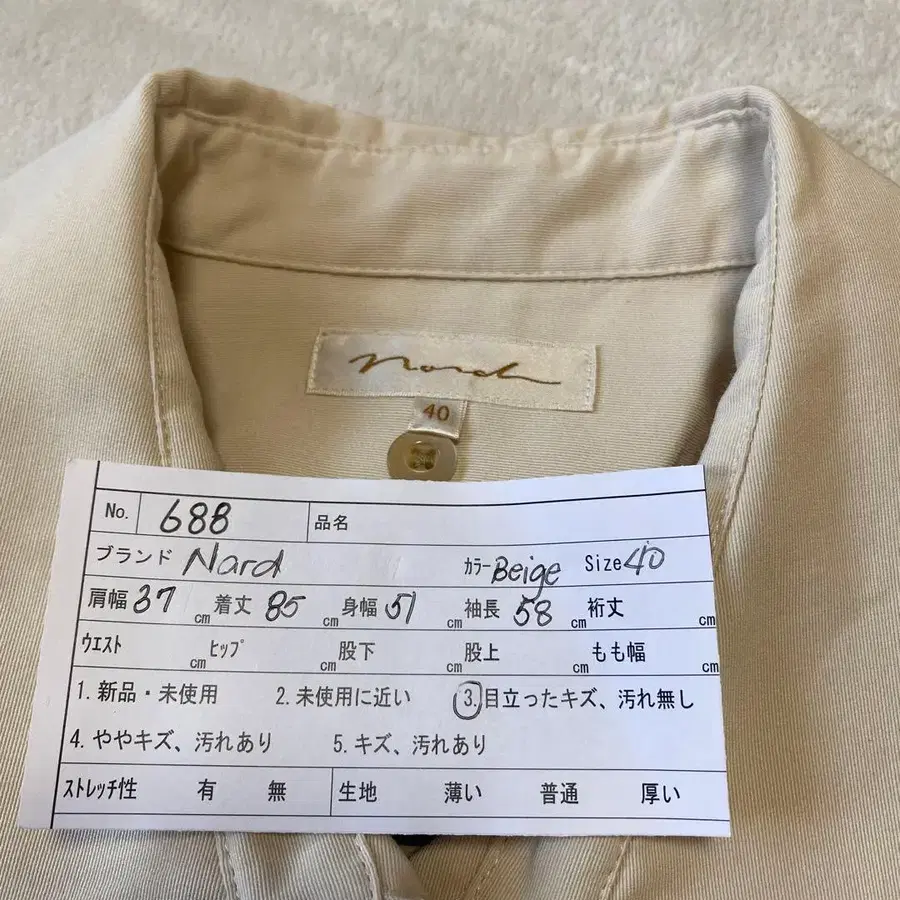 Nord
40
No. 688 品名
ブランド Nard カラー Beige Size 40
肩幅 37 cm 着丈 85 cm 身幅 51 cm 袖長 58 cm 裄丈 cm
ウエスト cm ヒップ cm 股下 cm 股上 cm もも幅 cm
1. 新品・未使用 2. 未使用に近い 3. 目立ったキズ、汚れ無し
4. ややキズ、汚れあり 5. キズ、汚れあり
ストレッチ性 有 無 生地 薄い 普通 厚い